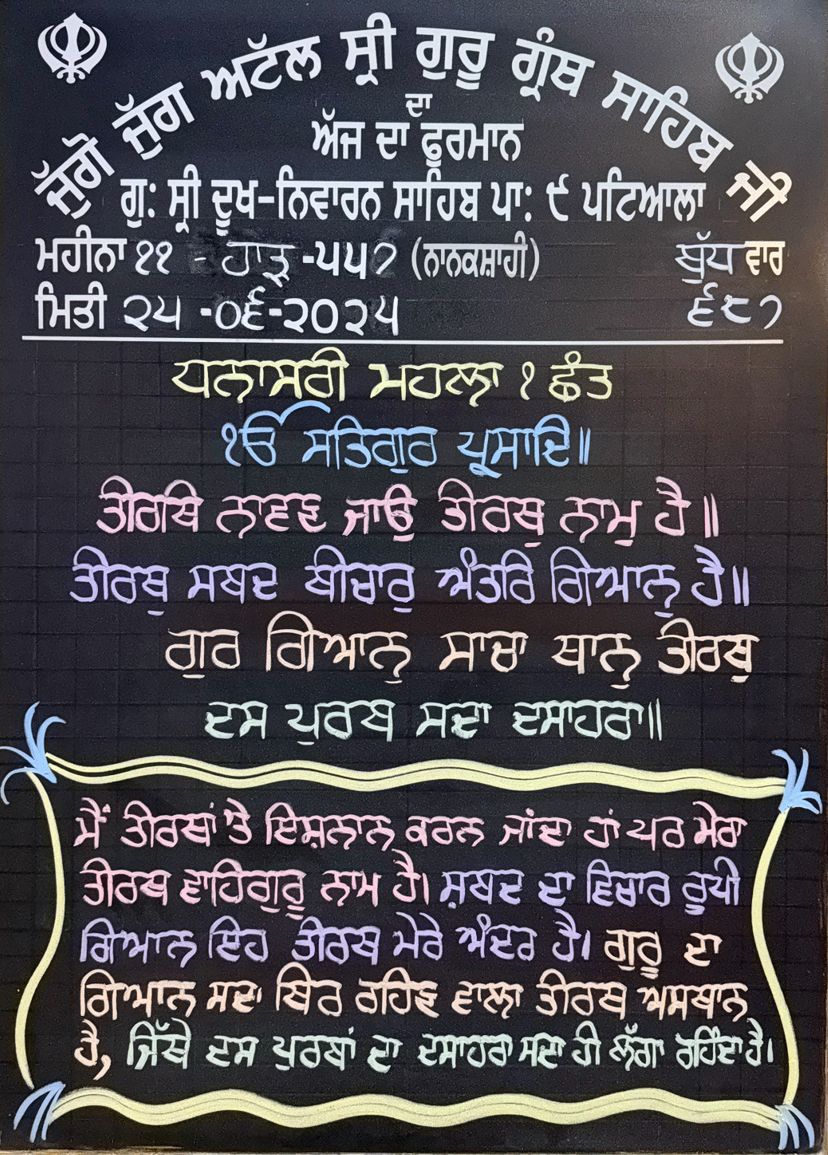 ਜੁੱਗੋ ਜੁੱਗ ਅਟੱਲ ਸ੍ਰੀ ਗੁਰੂ ਗ੍ਰੰਥ ਸਾਹਿਬ ਜੀ
ਦਾ
ਅੱਜ ਦਾ ਫੁਰਮਾਨ
ਗੁ: ਸ੍ਰੀ ਦੂਖ-ਨਿਵਾਰਨ ਸਾਹਿਬ ਪਾ: ੯ ਪਟਿਆਲਾ
ਮਹੀਨਾ ੧੧ - ਹਾੜ੍ਹ -੫੫੭ (ਨਾਨਕਸ਼ਾਹੀ) ਬੁੱਧ ਵਾਰ
ਮਿਤੀ ੨੫ -੦੬-੨੦੨੫ ੬੮੭
ਧਨਾਸਰੀ ਮਹਲਾ ੧ ਛੰਤ
ੴ ਸਤਿਗੁਰ ਪ੍ਰਸਾਦਿ॥
ਤੀਰਥਿ ਨਾਵਣ ਜਾਉ ਤੀਰਥੁ ਨਾਮੁ ਹੈ॥
ਤੀਰਥੁ ਸਬਦ ਬੀਚਾਰੁ ਅੰਤਰਿ ਗਿਆਨੁ ਹੈ॥
ਗੁਰ ਗਿਆਨੁ ਸਾਚਾ ਥਾਨੁ ਤੀਰਥੁ
ਦਸ ਪੁਰਬ ਸਦਾ ਦਸਾਹਰਾ॥
ਮੈਂ ਤੀਰਥਾਂ 'ਤੇ ਇਸ਼ਨਾਨ ਕਰਨ ਜਾਂਦਾ ਹਾਂ ਪਰ ਮੇਰਾ
ਤੀਰਥ ਵਾਹਿਗੁਰੂ ਨਾਮ ਹੈ। ਸ਼ਬਦ ਦਾ ਵਿਚਾਰ ਰੂਪੀ
ਗਿਆਨ ਇਹ ਤੀਰਥ ਮੇਰੇ ਅੰਦਰ ਹੈ। ਗੁਰੂ ਦਾ
ਗਿਆਨ ਸਦਾ ਥਿਰ ਰਹਿਣ ਵਾਲਾ ਤੀਰਥ ਅਸਥਾਨ
ਹੈ, ਜਿੱਥੇ ਦਸ ਪੁਰਬਾਂ ਦਾ ਦਸਾਹਰਾ ਸਦਾ ਹੀ ਲੱਗਾ ਰਹਿੰਦਾ ਹੈ।